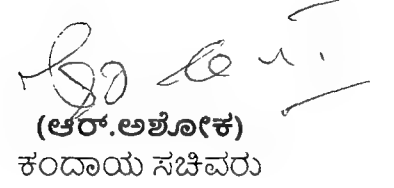 (ಆರ್.ಅಶೋಕ)
ಕಂದಾಯ ಸಚಿವರು